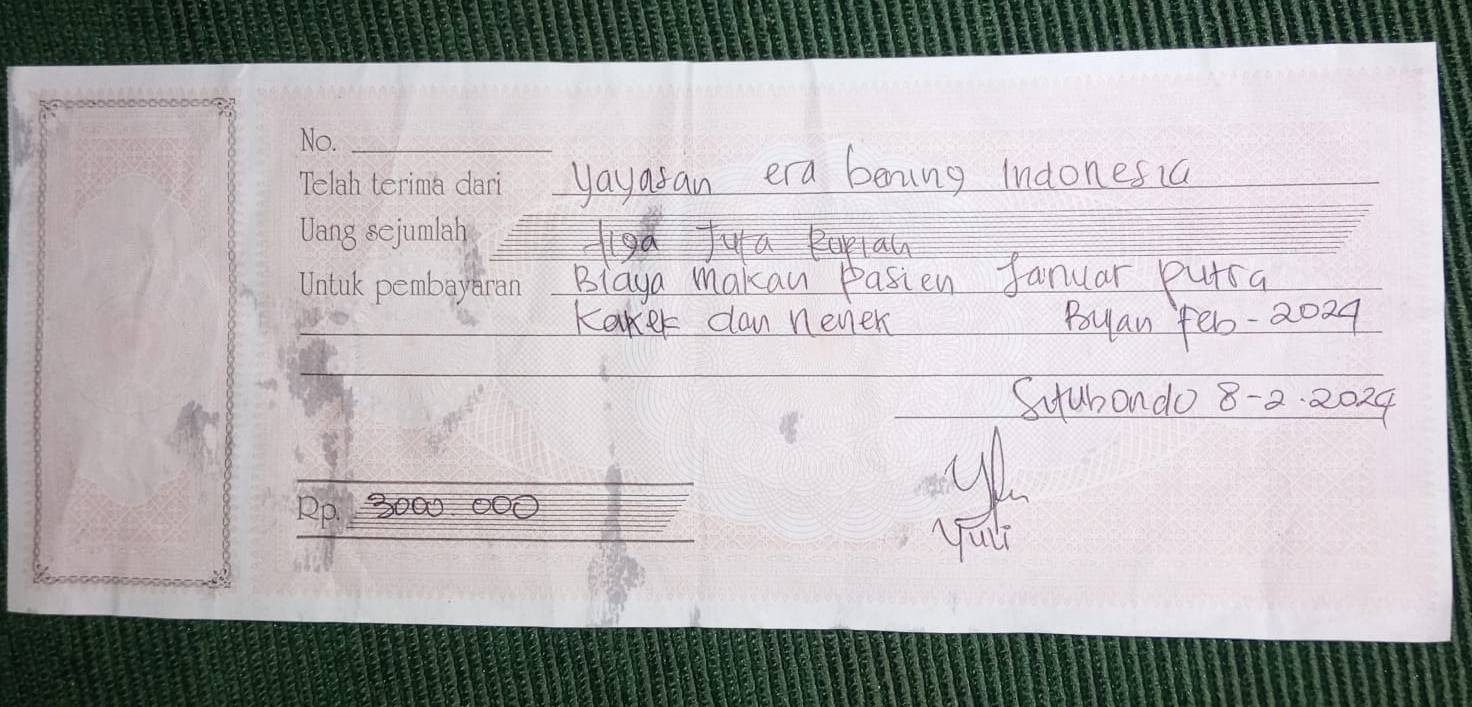 No.
Telah terima dari Yayasan era bening Indonesia
Uang sejumlah tiga Juta Rupiah
Untuk pembayaran Biaya Makan Pasien Januar putra
Kakek dan Nenek Bulan Feb-2024
Situbondo 8-2.2024
Rp. 3000.000
Yuli